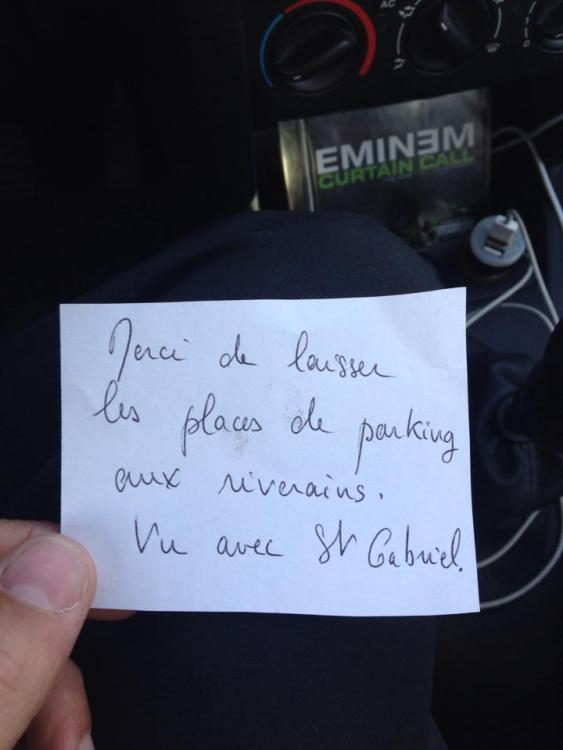 AC
EMINEM
CURTAIN CALL
Merci de laisser
les places de parking
aux riverains.
Vu avec St Gabriel.